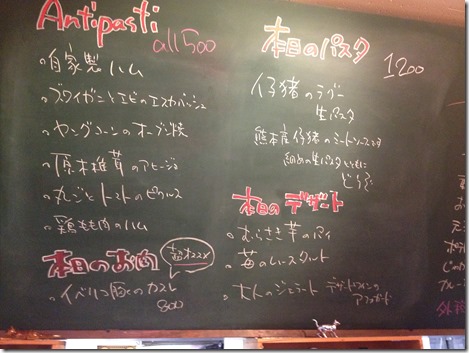 Antipasti
all 500
・自家製ハム
・ズワイガニとエビのエスカベッシュ
・ヤングコーンのオーブン焼
・原木椎茸のアヒージョ
・丸ごとトマトのピクルス
・鶏もも肉のハム
本日のお肉
超オススメ
・イベリコ豚の
800
本日のパスタ
1200
仔猪のラグー
生パスタ
熊本産仔猪のミートソースです
細めの生パスタとともに
どうぞ
本日のデザート
・むらさき芋のパイ
・苺のムースタルト
・大人のジェラート デザートワインの
アフォガード